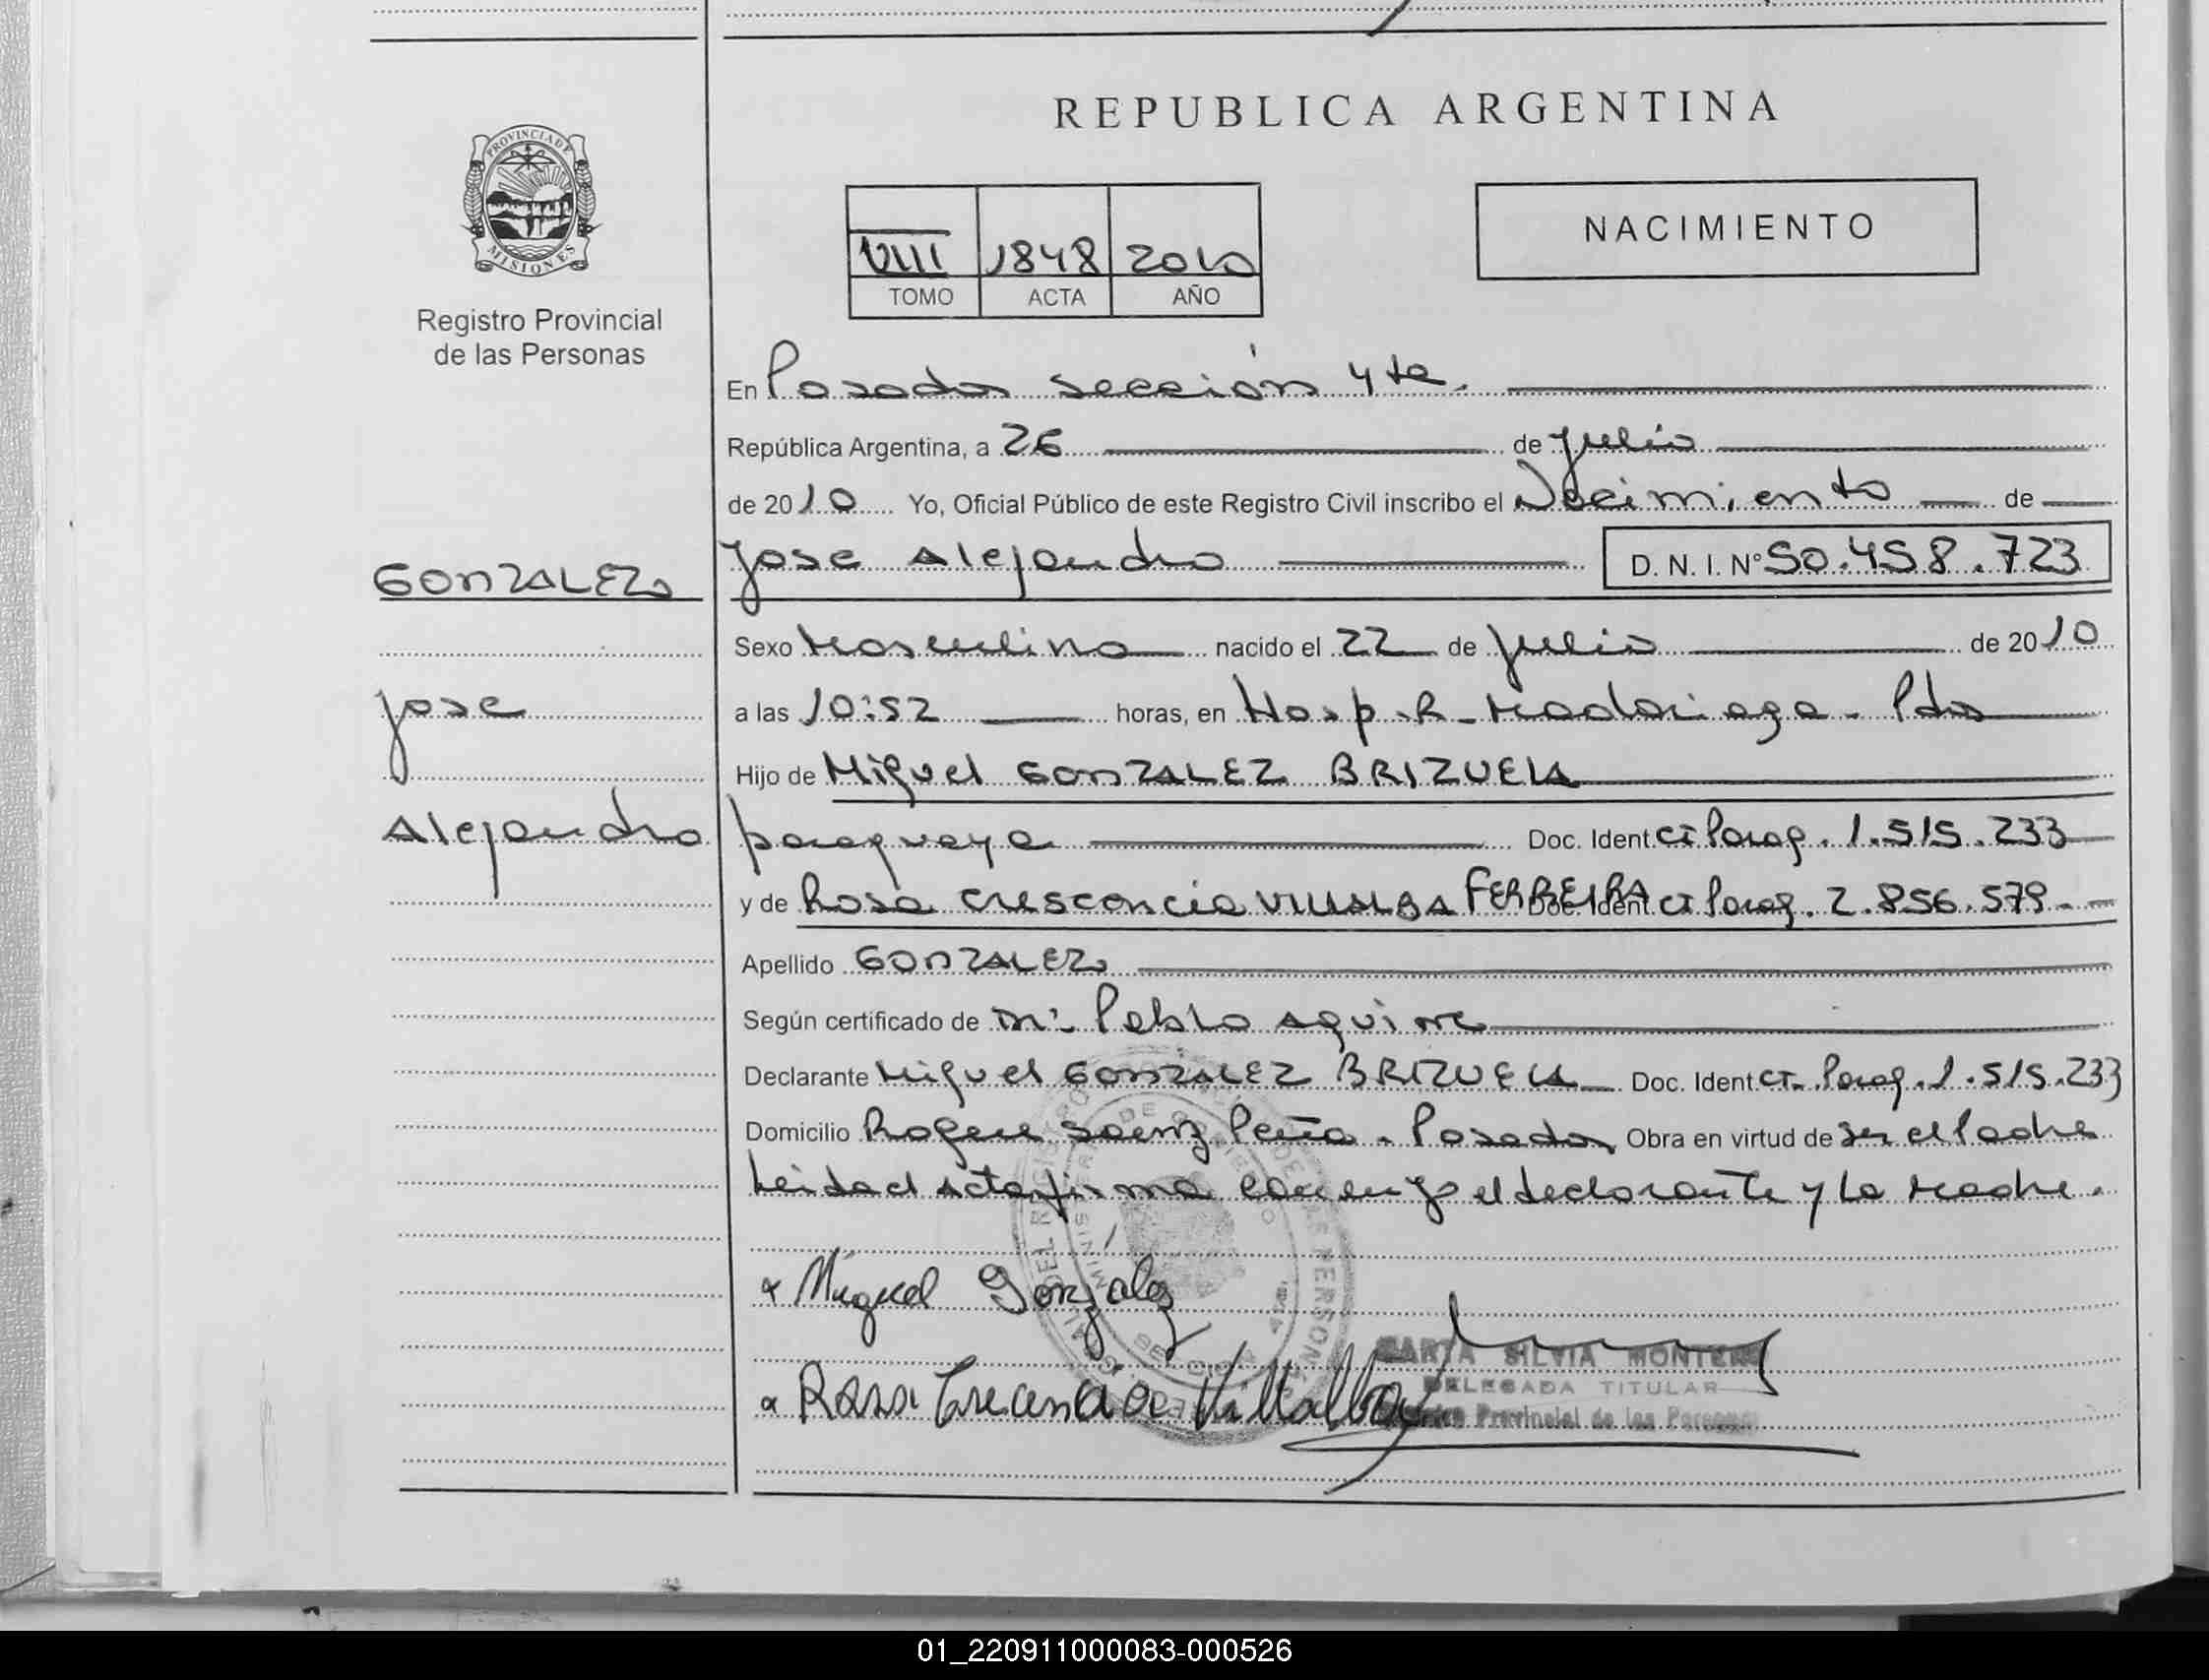 REPUBLICA ARGENTINA
PROVINCIA DE MISIONES
Registro Provincial
de las Personas
VIII 1848 2010
TOMO ACTA AÑO
NACIMIENTO
En Posadas sección 4ta.
República Argentina, a 26 de Julio
de 2010 Yo, Oficial Público de este Registro Civil inscribo el Nacimiento de
GONZALEZ
Jose Alejandro D. N. I. Nº 50.458.723
Sexo Masculino nacido el 22 de Julio de 2010
Jose
a las 10:52 horas, en Hosp. R. Madariaga - Pdas
Hijo de Miguel GONZALEZ BRIZUELA
Alejandro
paraguaya Doc. Ident. CI Parag. 1.515.233
y de Rosa Crescencia VILLALBA FERREIRA Doc. Ident CI Parag. 2.856.579
Apellido GONZALEZ
Según certificado de Pablo Aguirre
Declarante Miguel GONZALEZ BRIZUELA Doc. Ident CI. Parag. 1.515.233
Domicilio Roque Saenz Peña - Posadas Obra en virtud de ser el Padre
Leida el Acta firma conmigo el declarante y la Madre.
x Miguel Gonzalez
SILVIA MONTERO
DELEGADA TITULAR
x Rosa Villalba
Provincial de las Personas
01_220911000083-000526